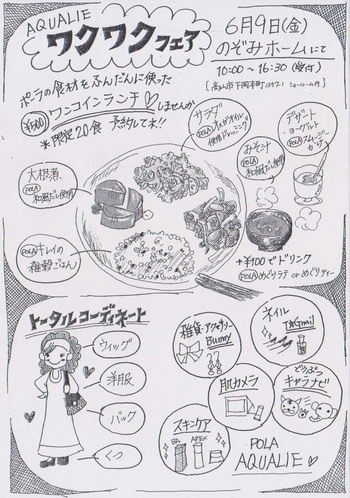 AQUALIE
ワクワクフェア
6月9日(金)
のぞみホームにて
10:00〜16:30(受付)
ポーラの食材をふんだんに使った
¥500 ワンコインランチ♡しませんか
*限定20食 予約して下さい!!
サラダ
POLA
使用ドレッシング
デザート
・ヨーグルト
POLA スムージー
みそ汁
POLA 和風だし使用
大根煮
POLA
和風だし使用
POLA キレイの
雑穀ごはん
+¥100でドリンク
POLA めぐりラテ or めぐりティー
トータルコーディネート
ウィッグ
洋服
バック
くつ
雑貨・アクセサリー
Bunny
ネイル
どうぶつ
キャラナビ
肌カメラ
スキンケア
BA APEX
POLA
AQUALIE♡